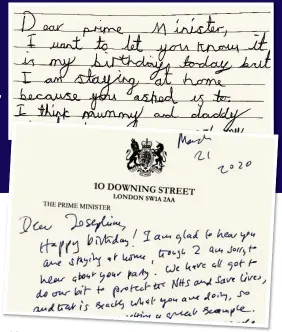 Dear prime Minister,
I want to let you know it
is my birthday today but
I am staying at home
because you asked is to.
I think mummy and daddy
March
21
2020
10 DOWNING STREET
LONDON SW1A 2AA
THE PRIME MINISTER
Dear Josephine,
Happy birthday! I am glad to hear you
are staying at home, though I am sorry to
hear about your party. We have all got to
do our bit to protect our NHS and save lives,
and that is exactly what you are doing, so
a great example.